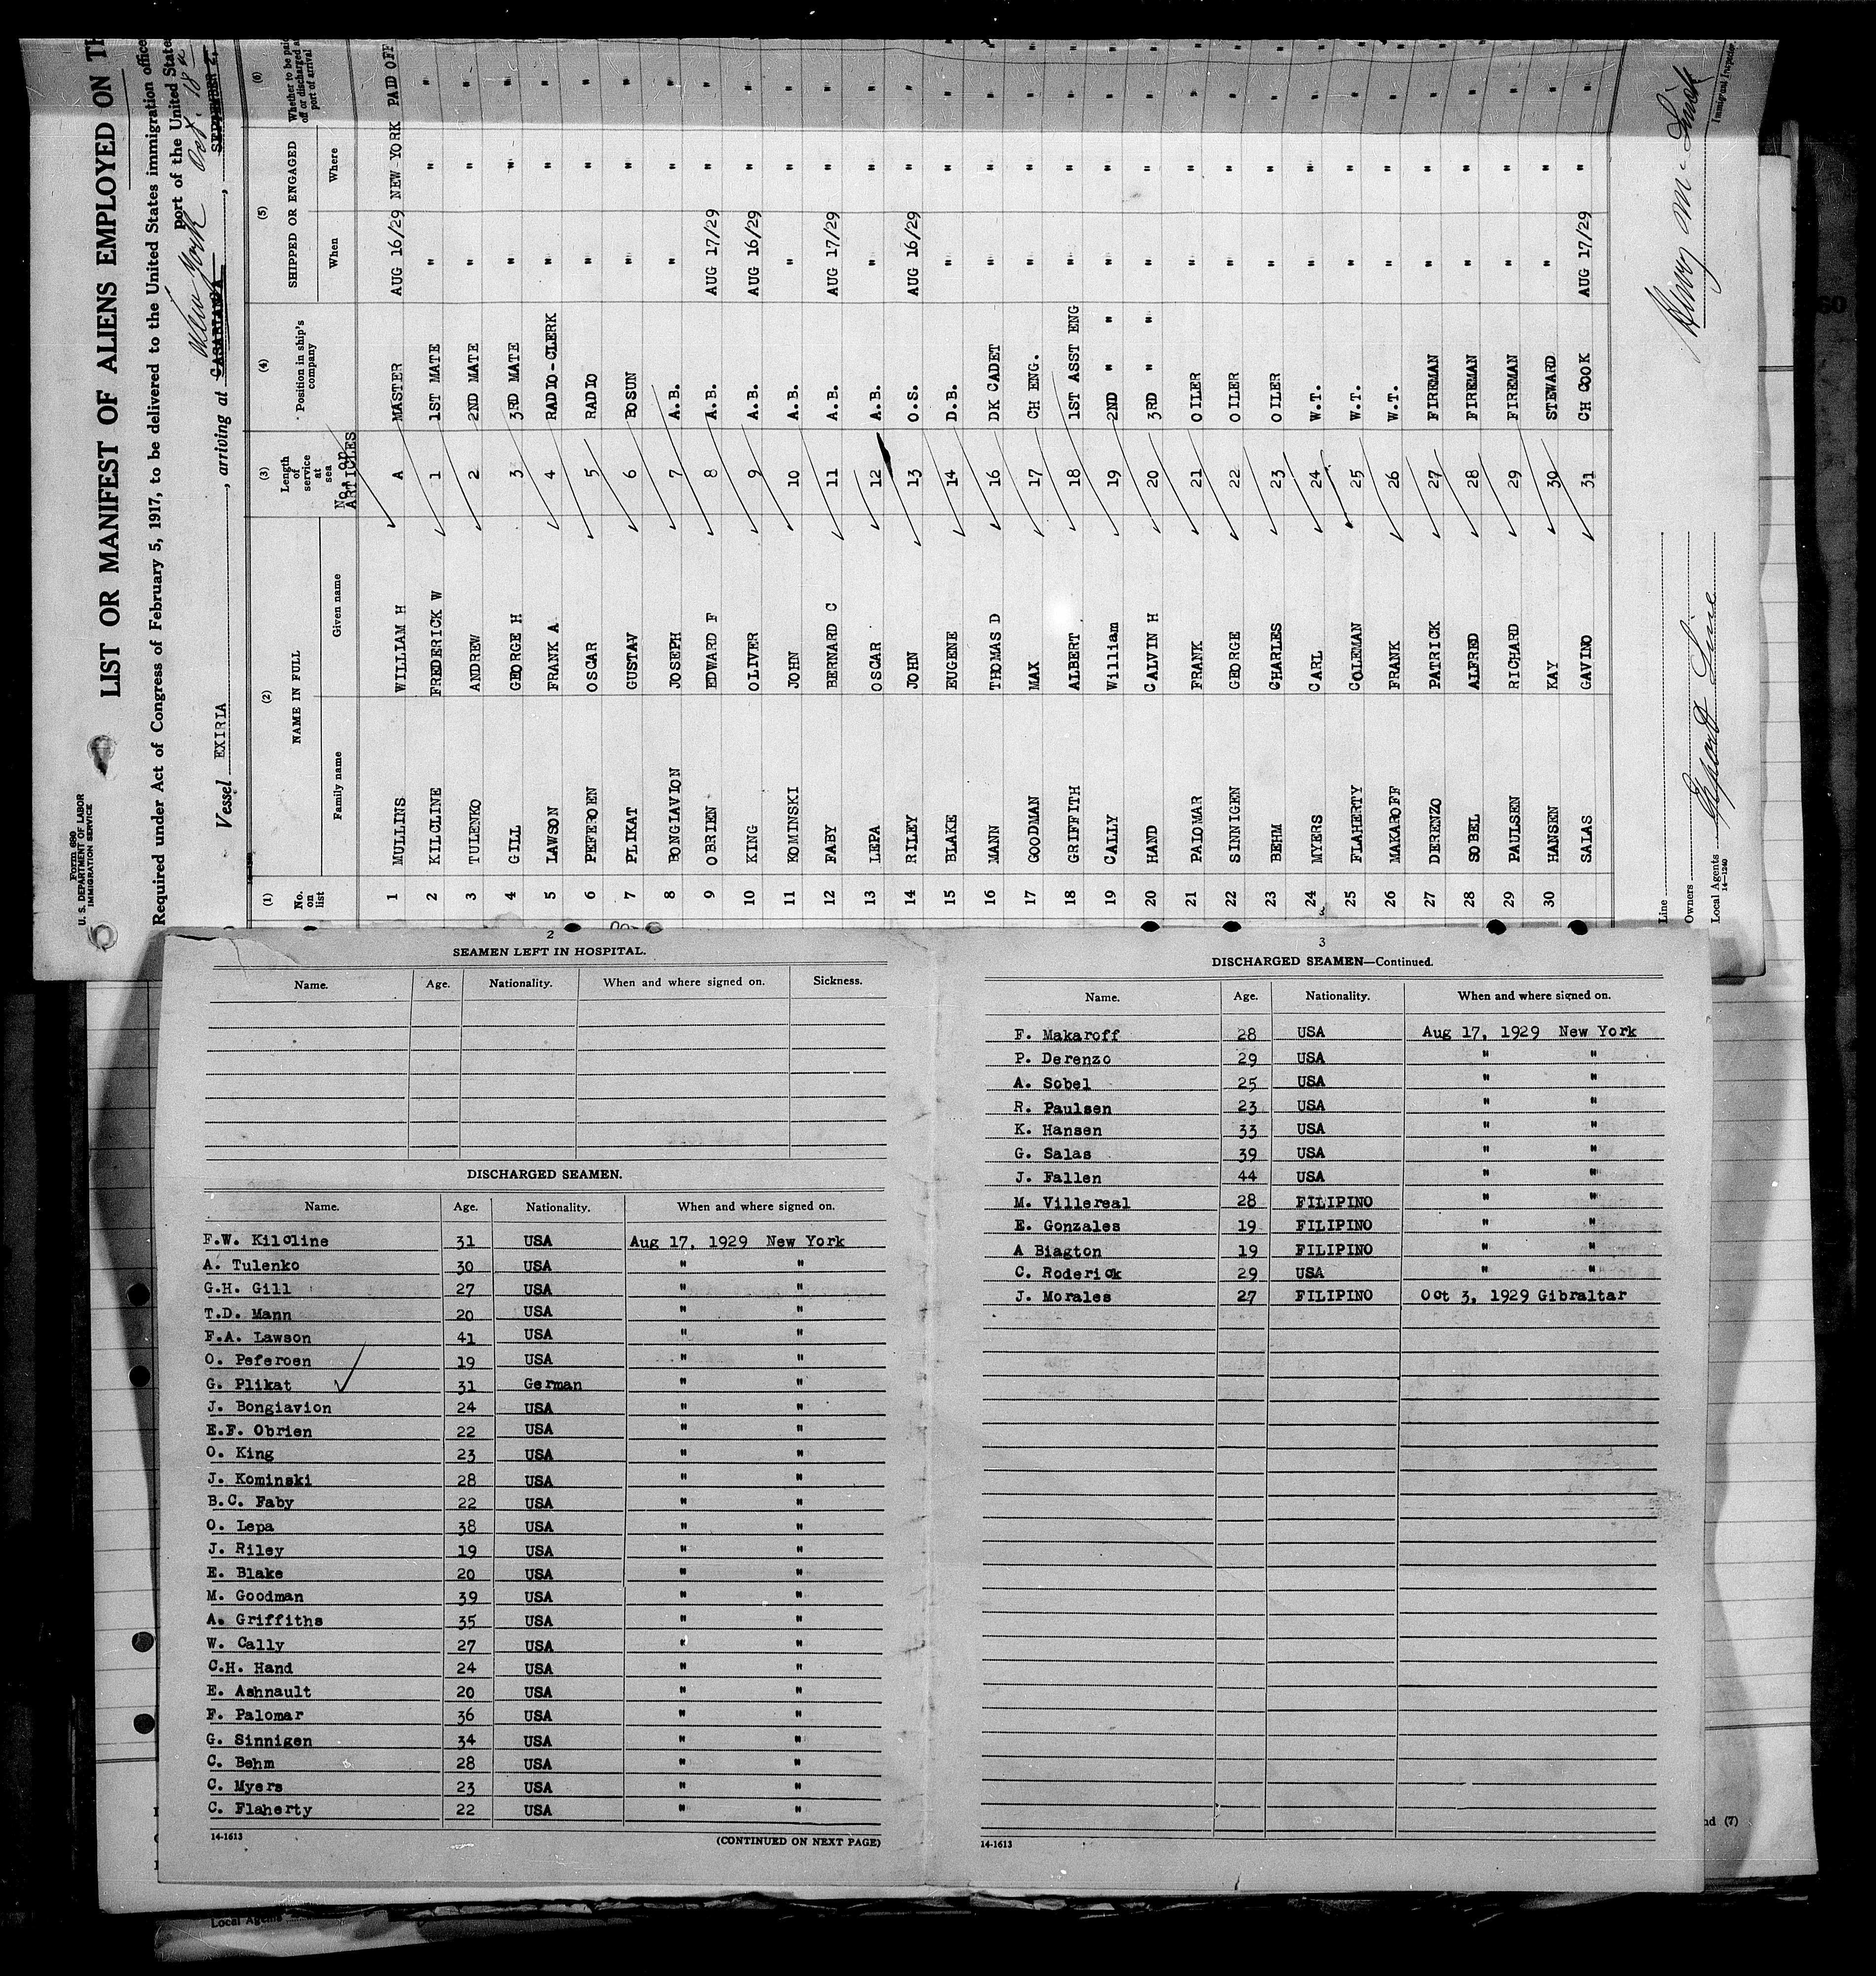 Form 680
U. S. DEPARTMENT OF LABOR
IMMIGRATION SERVICE
LIST OR MANIFEST OF ALIENS EMPLOYED ON
Required under Act of Congress of February 5, 1917, to be delivered to the United States immigration
port of the United
Vessel EXIRIA, arriving at CASABLANCA, SEPTEMBER 2,
New York Oct. 18
(1) (2) (3) (4) (5) (6)
No. on list
NAME IN FULL
Family name Given name
Length of service at sea
No. on ARTICLES
Position in ship's company
SHIPPED OR ENGAGED
When Where
Whether to be paid off or discharged at port of arrival
1 MULLINS WILLIAM H A MASTER AUG 16/29 NEW YORK PAID OFF
2 KILCLINE FREDERICK W 1 1ST MATE " " "
3 TULENKO ANDREW 2 2ND MATE " " "
4 GILL GEORGE H 3 3RD MATE " " "
5 LAWSON FRANK A 4 RADIO-CLERK " " "
6 PEFEROEN OSCAR 5 RADIO " " "
7 PLIKAT GUSTAV 6 BOSUN " " "
8 BONGIAVION JOSEPH 7 A.B. " " "
9 OBRIEN EDWARD F 8 A.B. AUG 17/29 " "
10 KING OLIVER 9 A.B. AUG 16/29 " "
11 KOMINSKI JOHN 10 A.B. " " "
12 FABY BERNARD C 11 A.B. AUG 17/29 " "
13 LEPA OSCAR 12 A.B. " " "
14 RILEY JOHN 13 O.S. AUG 16/29 " "
15 BLAKE EUGENE 14 D.B. " " "
16 MANN THOMAS D 16 DK CADET " " "
17 GOODMAN MAX 17 CH ENG. " " "
18 GRIFFITH ALBERT 18 1ST ASST ENG " " "
19 CALLY William 19 2ND " " " " "
20 HAND CALVIN H 20 3RD " " " " "
21 PALOMAR FRANK 21 OILER " " "
22 SINNIGEN GEORGE 22 OILER " " "
23 BEHM CHARLES 23 OILER " " "
24 MYERS CARL 24 W.T. " " "
25 FLAHERTY COLEMAN 25 W.T. " " "
26 MAKAROFF FRANK 26 W.T. " " "
27 DERENZO PATRICK 27 FIREMAN " " "
28 SOBEL ALFRED 28 FIREMAN " " "
29 PAULSEN RICHARD 29 FIREMAN " " "
30 HANSEN KAY 30 STEWARD " " "
SALAS GAVINO 31 CH COOK AUG 17/29 " "
Line
Owners
Local Agents Export Line
14-1240
Immigrant Inspector.
2
SEAMEN LEFT IN HOSPITAL.
Name. Age. Nationality. When and where signed on. Sickness.
DISCHARGED SEAMEN.
Name. Age. Nationality. When and where signed on.
F.W. Kilcline 31 USA Aug 17, 1929 New York
A. Tulenko 30 USA " "
G.H. Gill 27 USA " "
T.D. Mann 20 USA " "
F.A. Lawson 41 USA " "
O. Peferoen 19 USA " "
G. Plikat 31 German " "
J. Bongiavion 24 USA " "
E.F. Obrien 22 USA " "
O. King 23 USA " "
J. Kominski 28 USA " "
B.C. Faby 22 USA " "
O. Lepa 38 USA " "
J. Riley 19 USA " "
E. Blake 20 USA " "
M. Goodman 39 USA " "
A. Griffiths 35 USA " "
W. Cally 27 USA " "
C.H. Hand 24 USA " "
E. Ashnault 20 USA " "
F. Palomar 36 USA " "
G. Sinnigen 34 USA " "
C. Behm 28 USA " "
C. Myers 23 USA " "
C. Flaherty 22 USA " "
14-1613 (CONTINUED ON NEXT PAGE)
3
DISCHARGED SEAMEN—Continued.
Name. Age. Nationality. When and where signed on.
F. Makaroff 28 USA Aug 17, 1929 New York
P. Derenzo 29 USA " "
A. Sobel 25 USA " "
R. Paulsen 23 USA " "
K. Hansen 33 USA " "
G. Salas 39 USA " "
J. Fallen 44 USA " "
M. Villereal 28 FILIPINO " "
E. Gonzales 19 FILIPINO " "
A Biagton 19 FILIPINO " "
C. Roderick 29 USA " "
J. Morales 27 FILIPINO Oct 3, 1929 Gibraltar
14-1613
(7)
Local Agents